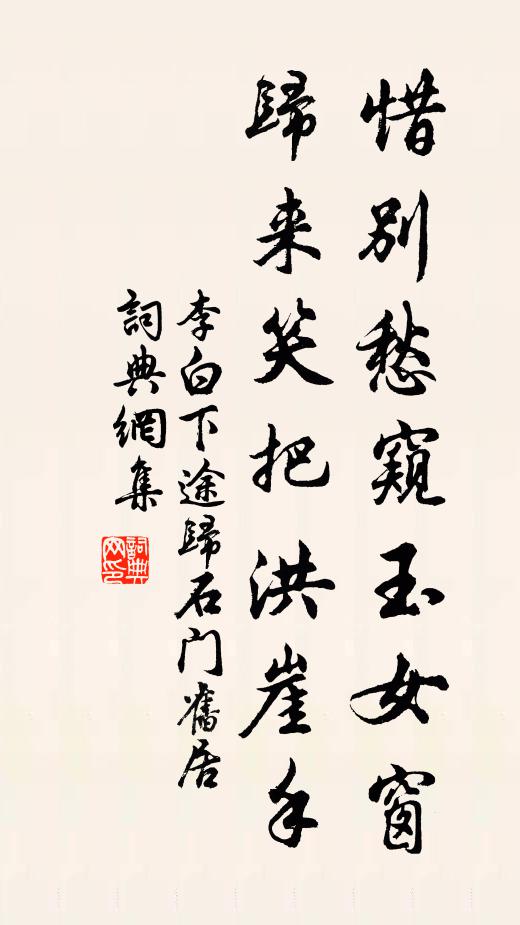 惜別愁窺玉女窗
歸来笑把洪崖手
李白下途歸石门舊居
詞典網集
詞典网印